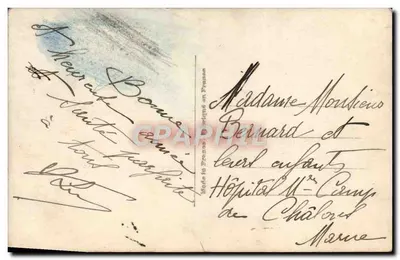 Bonne année
et heureuse
& Santé parfaite
à tous
Madame Monsieur
Bernard et
leurs enfants
Hôpital Mre Camp
de Châlons
Marne
CPARAMA